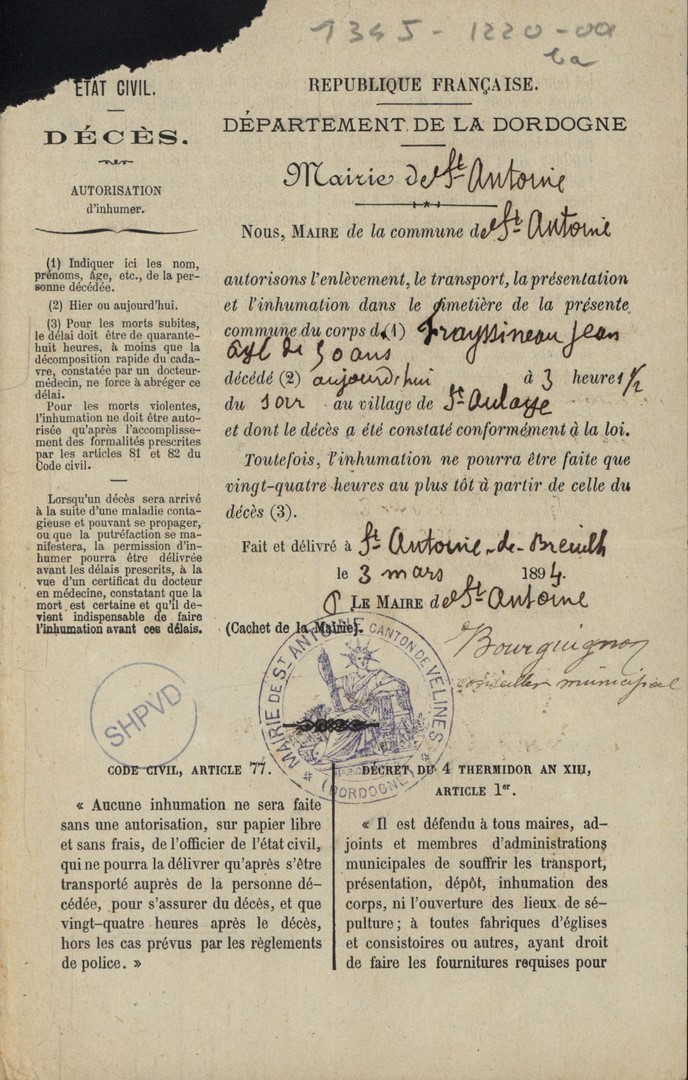 1345-1220-00
ba
ÉTAT CIVIL.
DÉCÈS.
AUTORISATION
d'inhumer.
(1) Indiquer ici les nom,
prénoms, âge, etc., de la per-
sonne décédée.
(2) Hier ou aujourd'hui.
(3) Pour les morts subites,
le délai doit être de quarante-
huit heures, à moins que la
décomposition rapide du cada-
vre, constatée par un docteur-
médecin, ne force à abréger ce
délai.
Pour les morts violentes,
l'inhumation ne doit être auto-
risée qu'après l'accomplisse-
ment des formalités prescrites
par les articles 81 et 82 du
Code civil.
Lorsqu'un décès sera arrivé
à la suite d'une maladie conta-
gieuse et pouvant se propager,
ou que la putréfaction se ma-
nifestera, la permission d'in-
humer pourra être délivrée
avant les délais prescrits, à la
vue d'un certificat du docteur
en médecine, constatant que la
mort est certaine et qu'il de-
vient indispensable de faire
l'inhumation avant ces délais.
REPUBLIQUE FRANÇAISE.
DÉPARTEMENT DE LA DORDOGNE
Mairie de St Antoine
Nous, MAIRE de la commune de St Antoine
autorisons l'enlèvement, le transport, la présentation
et l'inhumation dans le cimetière de la présente
commune du corps d (1) Frayssineau Jean
âgé de 50 ans
décédé (2) aujourd'hui à 3 heures 1/2
du soir au village de St Aulaye
et dont le décès a été constaté conformément à la loi.
Toutefois, l'inhumation ne pourra être faite que
vingt-quatre heures au plus tôt à partir de celle du
décès (3).
Fait et délivré à St Antoine-de-Breuilh
le 3 mars 1894.
P LE MAIRE de St Antoine
(Cachet de la Mairie).
Bourguignon
conseiller municipal
MAIRIE DE ST ANTOINE CANTON DE VÉLINES
(DORDOGNE)
SHPVD
CODE CIVIL, ARTICLE 77.
« Aucune inhumation ne sera faite
sans une autorisation, sur papier libre
et sans frais, de l'officier de l'état civil,
qui ne pourra la délivrer qu'après s'être
transporté auprès de la personne dé-
cédée, pour s'assurer du décès, et que
vingt-quatre heures après le décès,
hors les cas prévus par les règlements
de police. »
DÉCRET DU 4 THERMIDOR AN XIII,
ARTICLE 1er.
« Il est défendu à tous maires, ad-
joints et membres d'administrations
municipales de souffrir les transport,
présentation, dépôt, inhumation des
corps, ni l'ouverture des lieux de sé-
pulture ; à toutes fabriques d'églises
et consistoires ou autres, ayant droit
de faire les fournitures requises pour